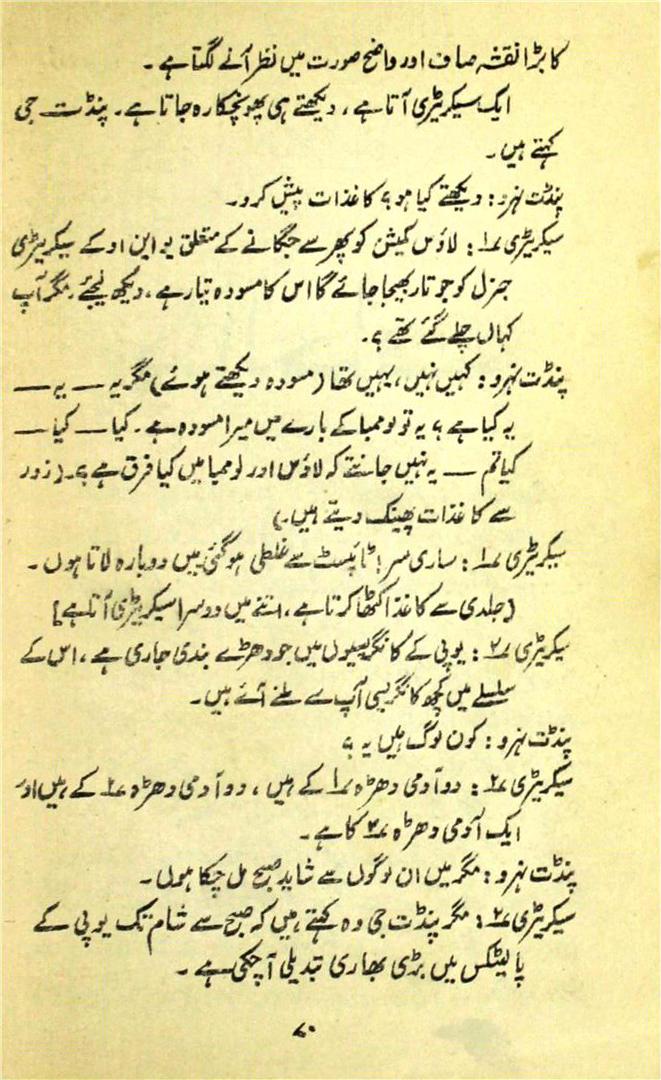 کا بڑا نقشہ صاف اور واضح صورت میں نظر آنے لگتا ہے۔
ایک سیکریٹری آتا ہے، دیکھتے ہی بھونچکا رہ جاتا ہے۔ پنڈت جی
کہتے ہیں۔
پنڈت نہرو: دیکھتے کیا ہو؟ کاغذات پیش کرو۔
سیکریٹری ۱؎: لاؤس کمیشن کو پھر سے جگانے کے متعلق یو این او کے سیکریٹری
جنرل کو جو تار بھیجا جائے گا اس کا مسودہ تیار ہے، دیکھ لیجئے۔ مگر آپ
کہاں چلے گئے تھے؟۔
پنڈت نہرو: کہیں نہیں، یہیں تھا (مسودہ دیکھتے ہوئے) مگر یہ — یہ —
یہ کیا ہے؟ یہ تو لومبا کے بارے میں میرا مسودہ ہے۔ کیا — کیا —
کیا تم — یہ نہیں جانتے کہ لاؤس اور لومبا میں کیا فرق ہے؟۔ (زور
سے کاغذات پھینک دیتے ہیں۔)
سیکریٹری ۱؎: ساری سر! ٹائپسٹ سے غلطی ہو گئی میں دوبارہ لاتا ہوں۔
(جلدی سے کاغذ اکٹھا کرتا ہے، اتنے میں دوسرا سیکریٹری آتا ہے)
سیکریٹری ۲؎: یوپی کے کانگریسیوں میں جو دھڑے بندی جاری ہے، اس کے
سلسلے میں کچھ کانگریسی آپ سے ملنے آئے ہیں۔
پنڈت نہرو: کون لوگ ہیں یہ؟
سیکریٹری ۲؎: دو آدمی دھڑہ ۱؎ کے ہیں، دو آدمی دھڑہ ۲؎ کے ہیں اور
ایک آدمی دھڑہ ۳؎ کا ہے۔
پنڈت نہرو: مگر میں ان لوگوں سے شاید صبح مل چکا ہوں۔
سیکریٹری ۲؎: مگر پنڈت جی وہ کہتے ہیں کہ صبح سے شام تک یوپی کے
پالیٹکس میں بڑی بھاری تبدیلی آ چکی ہے۔
۷۰